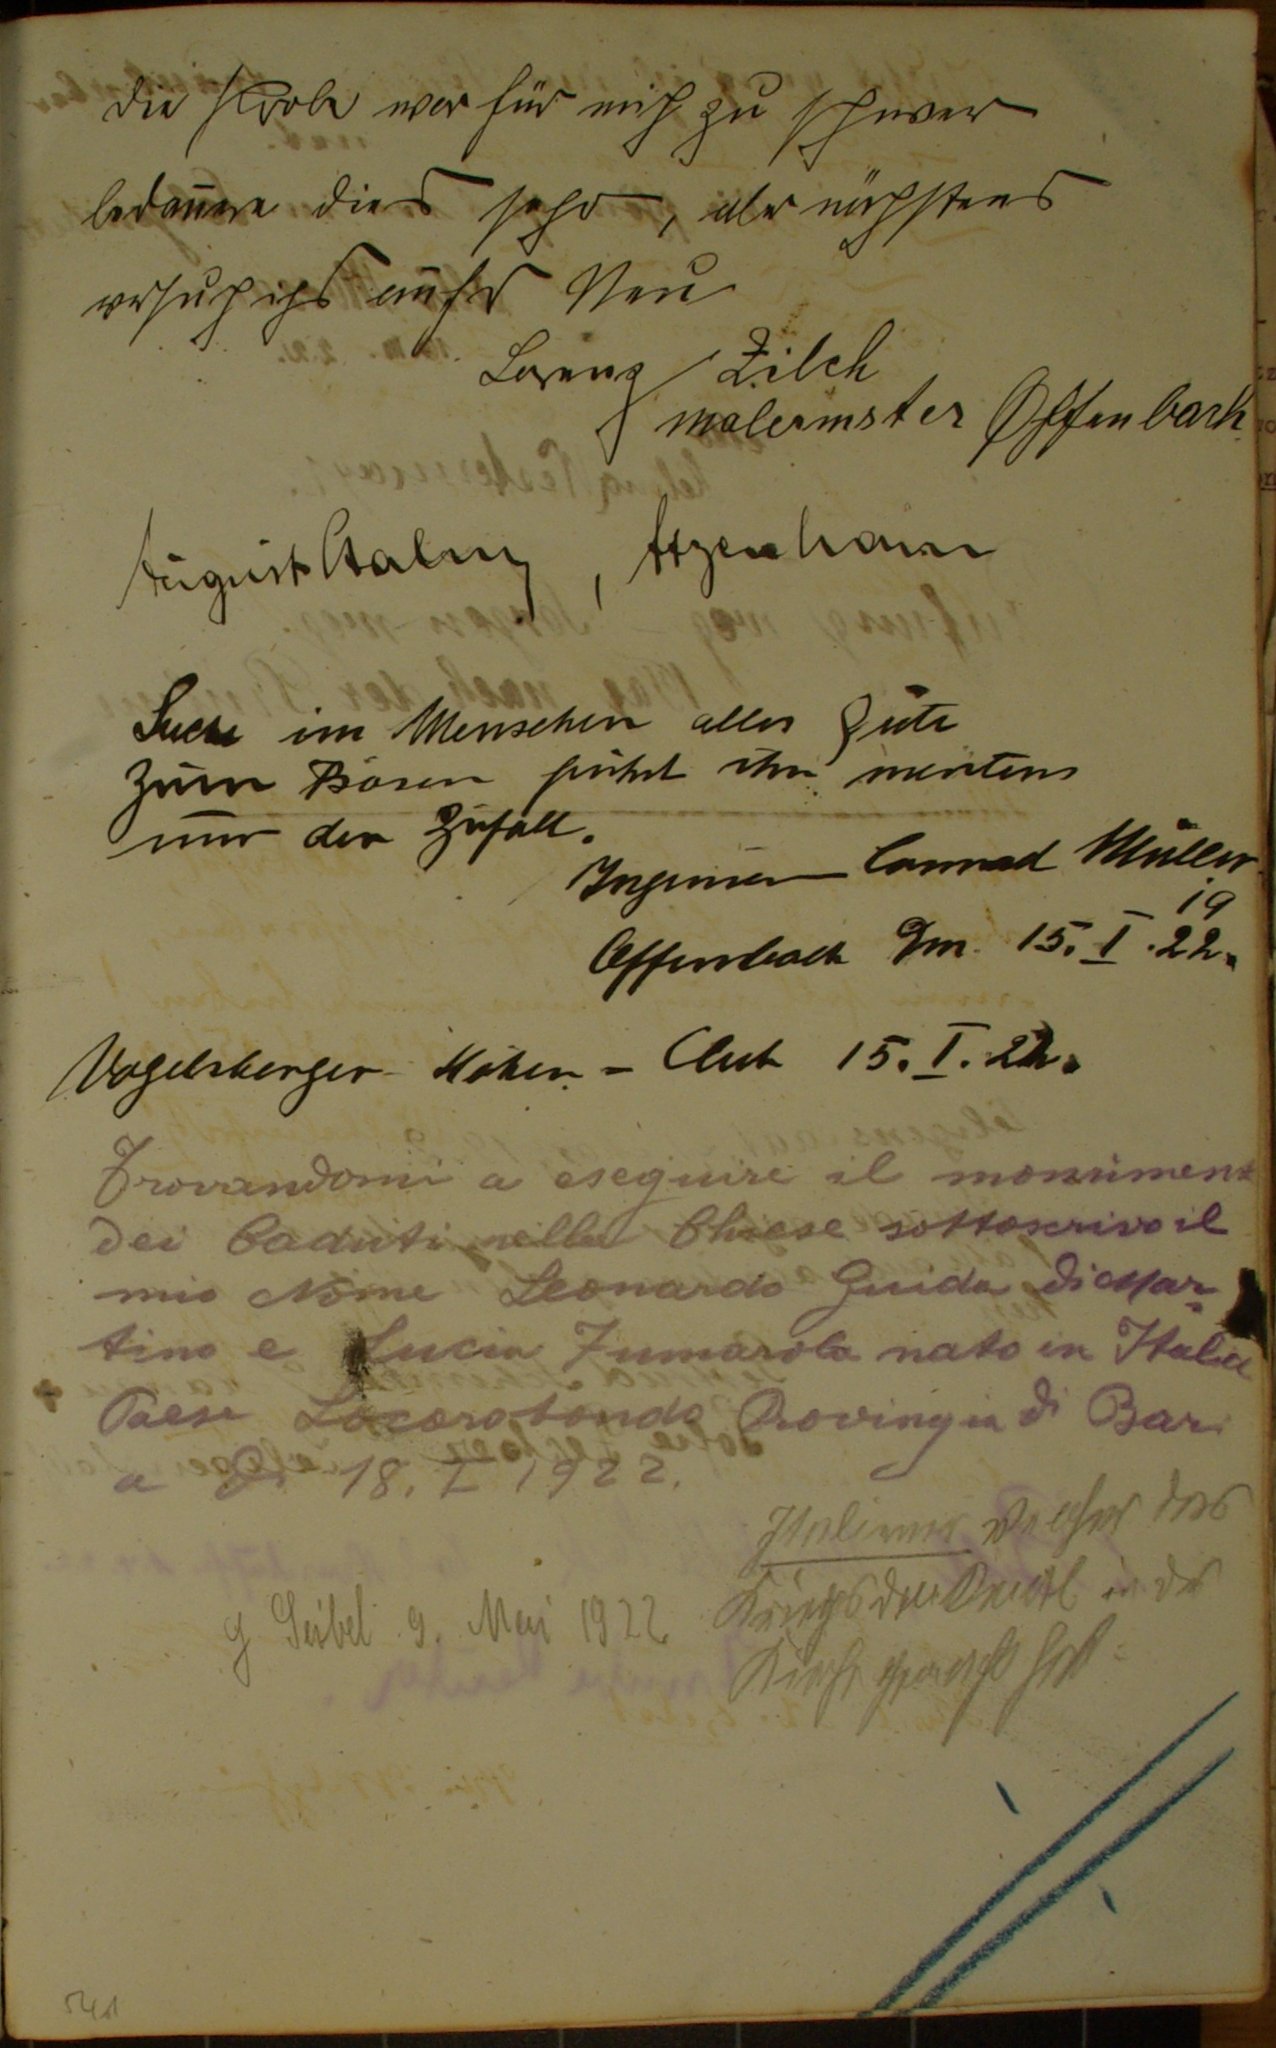 die Probe war für mich zu schwer
bedauere dies sehr, aber nächstens
versuch ichs aufs Neu
Lorenz Zilch
Malermster Offenbach
August Stalny, Atzenhain
Suche im Menschen alles Gute
Zum Bösen führt ihn meistens
nur der Zufall.
Ingenieur Conrad Müller
Offenbach a/m. 15. I. 1922.
Vogelsberger Höhen-Club 15. I. 22.
Trovandomi a eseguire il monument
dei Caduti nella Chiese sottoscrivo il
mio Nome Leonardo Guida di Mar-
tino e Lucia Fumarola nato in Italia
Paese Locorotondo Provingia di Bari
a D. 18. I 1922.
Italiener welcher das
Kriegsdenkmal in der
Kirche gemacht hat.
G Seibel 9. Mai 1922